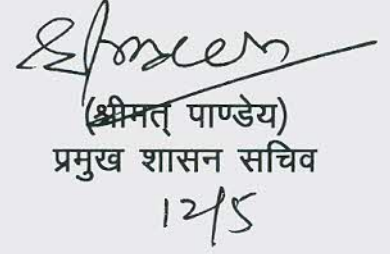 (श्रीमत् पाण्डेय)
प्रमुख शासन सचिव
12/5